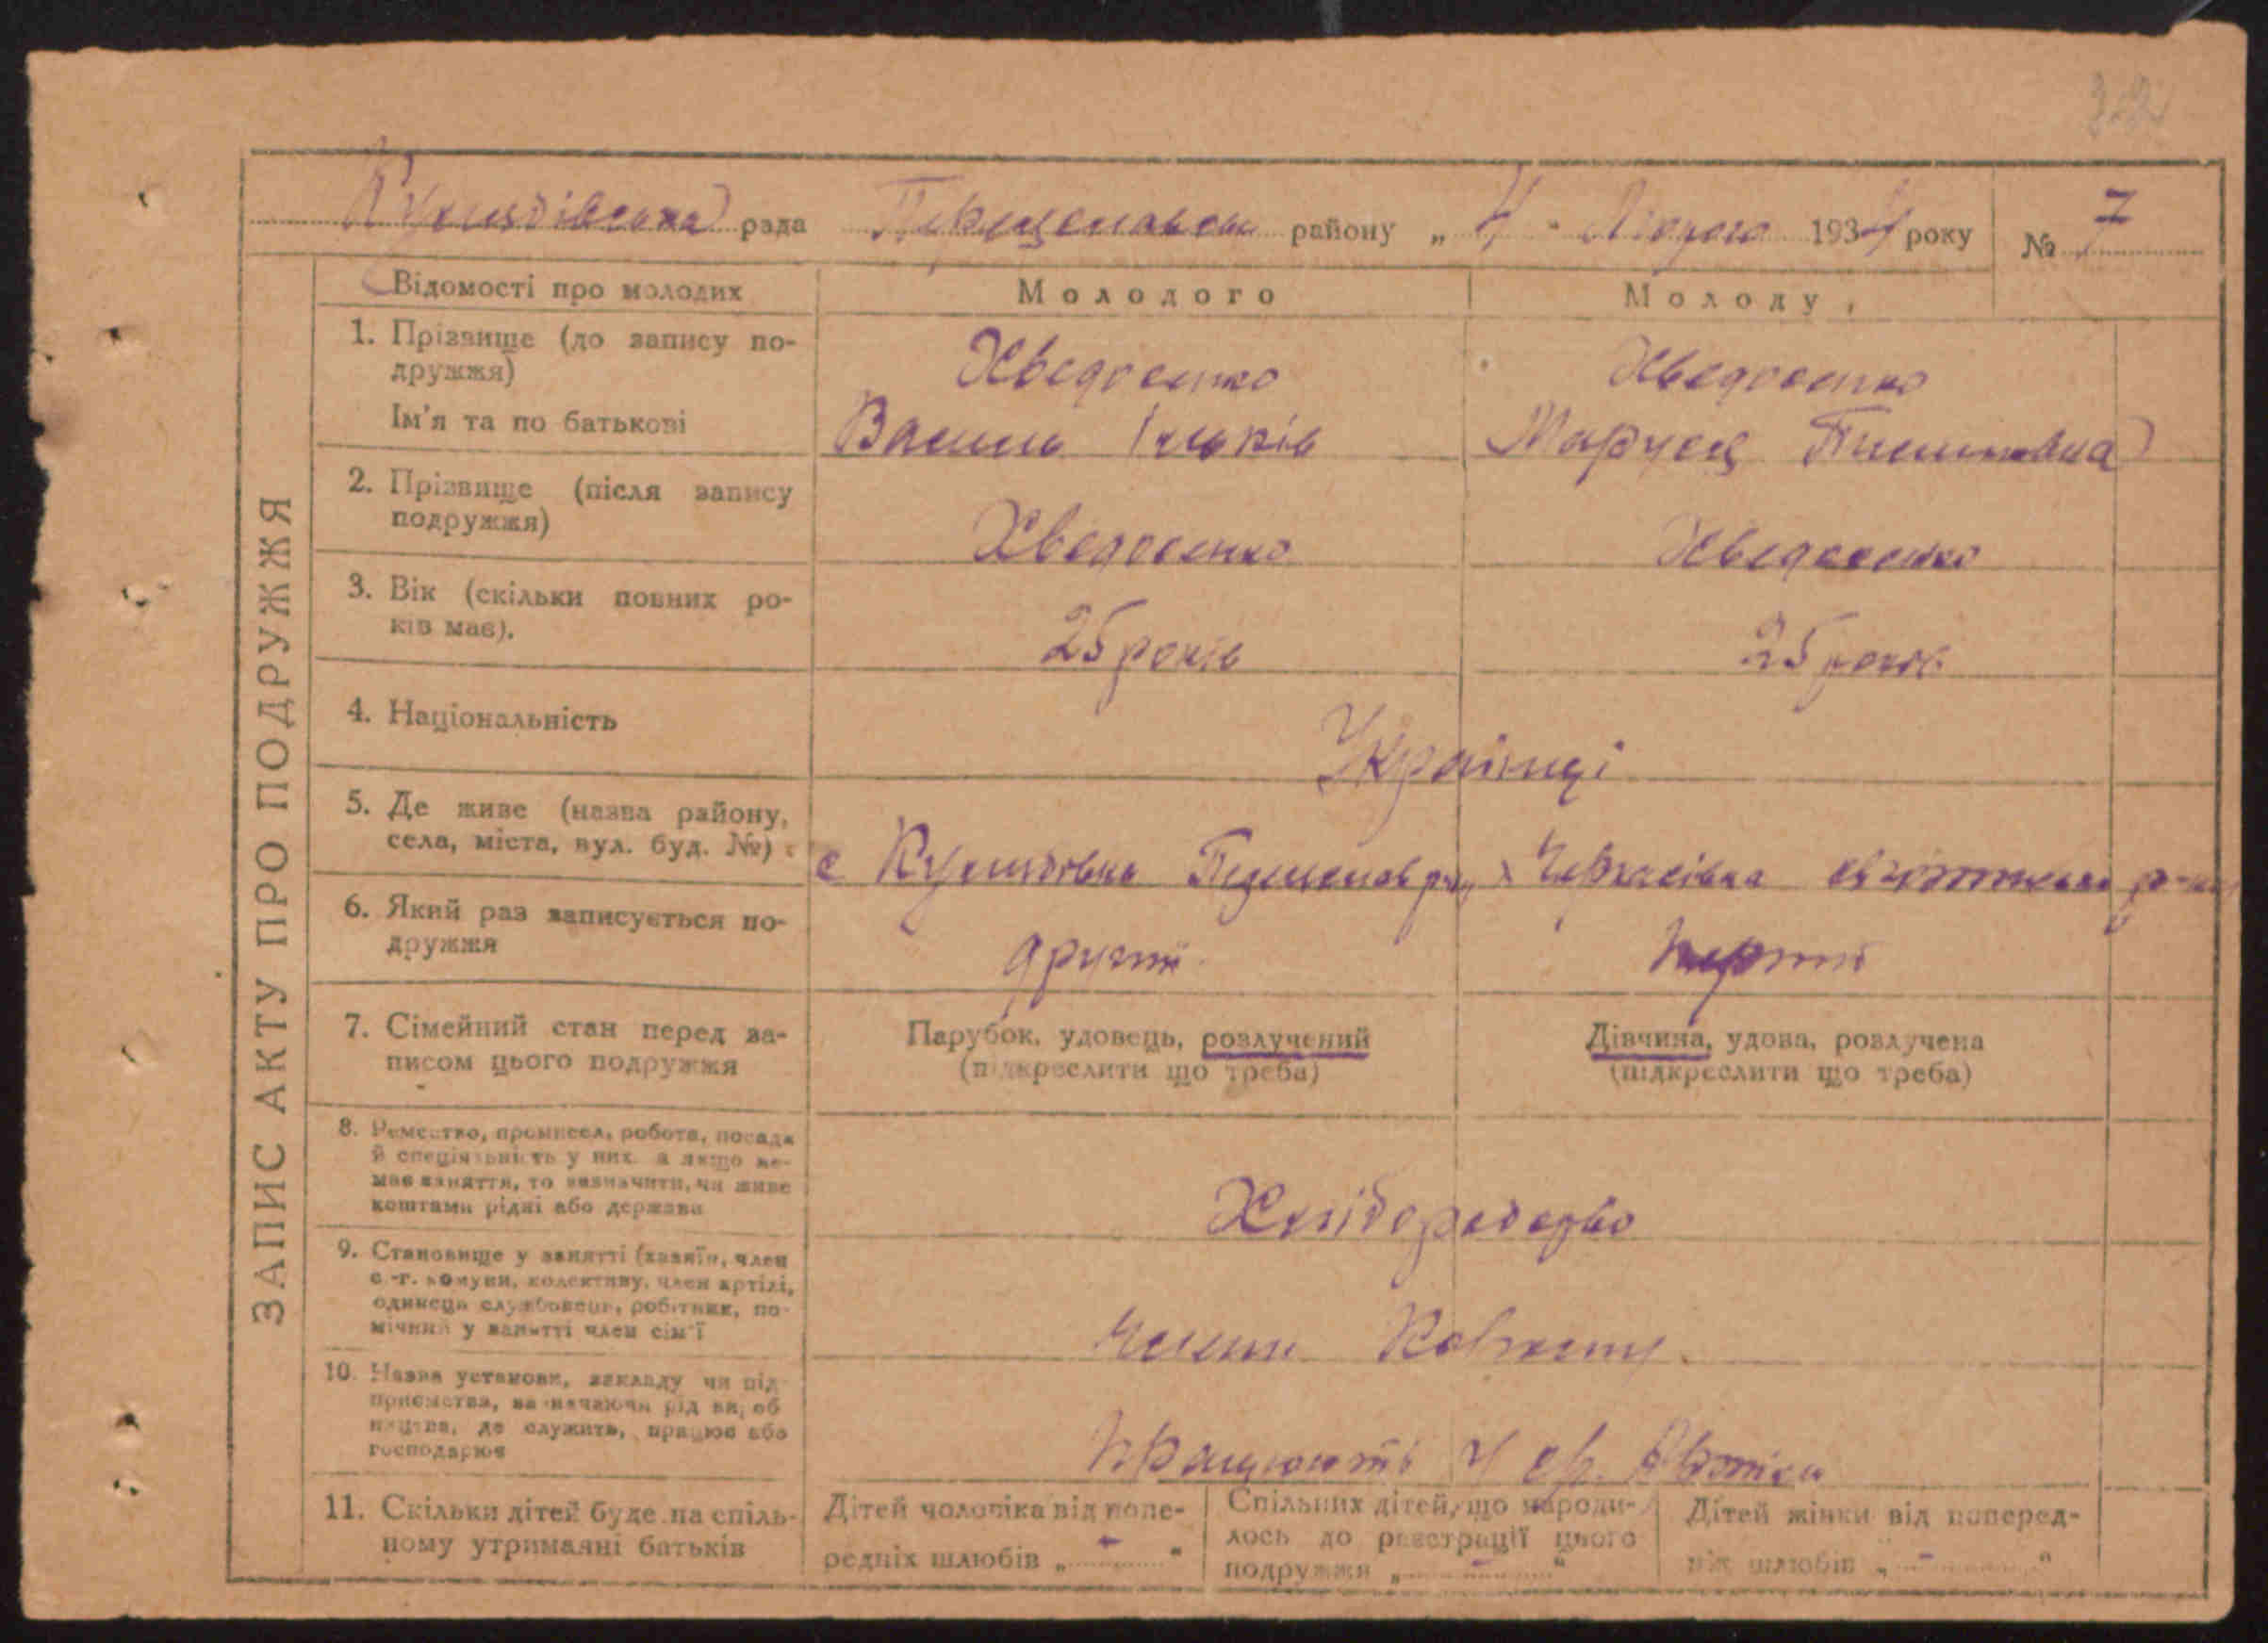 рада району „ 4 " Лютого 1934 року № 7
ЗАПИС АКТУ ПРО ПОДРУЖЖЯ
Відомості про молодих
Молодого
Молоду
1. Прізвище (до запису по-
дружжя)
Ім'я та по батькові
Хведосенко
Василь
Хведосенко
2. Прізвище (після запису
подружжя)
Хведосенко
Хведосенко
3. Вік (скільки повних ро-
ків має).
25 років
25 років
4. Національність
Українці
5. Де живе (назва району,
села, міста, вул. буд. №)
с
х
6. Який раз записується по-
дружжя
другий
перший
7. Сімейний стан перед за-
писом цього подружжя
Парубок, удовець, розлучений
(підкреслити що треба)
Дівчина, удова, розлучена
(підкреслити що треба)
8. Ремество, промисел, робота, посада
й спеціяльність у них, а якщо не-
має заняття, то зазначити, чи живе
коштами рідні або держави
Хліборобство
9. Становище у занятті (хазяїн, член
с.-г. комуни, колективу, член артілі,
одинець службовець, робітник, по-
мічний у занятті член сім'ї
Члени Колгоспу
10. Назва установи, закладу чи під
приємства, зазначаючи рід вироб
ництва, де служить, працює або
господарює
Працюють у Артілі
11. Скільки дітей буде на спіль-
ному утриманні батьків
Дітей чоловіка від попе-
редніх шлюбів „ - "
Спільних дітей, що народи-
лось до реєстрації цього
подружжя „ - "
Дітей жінки від поперед-
ніх шлюбів „ - "